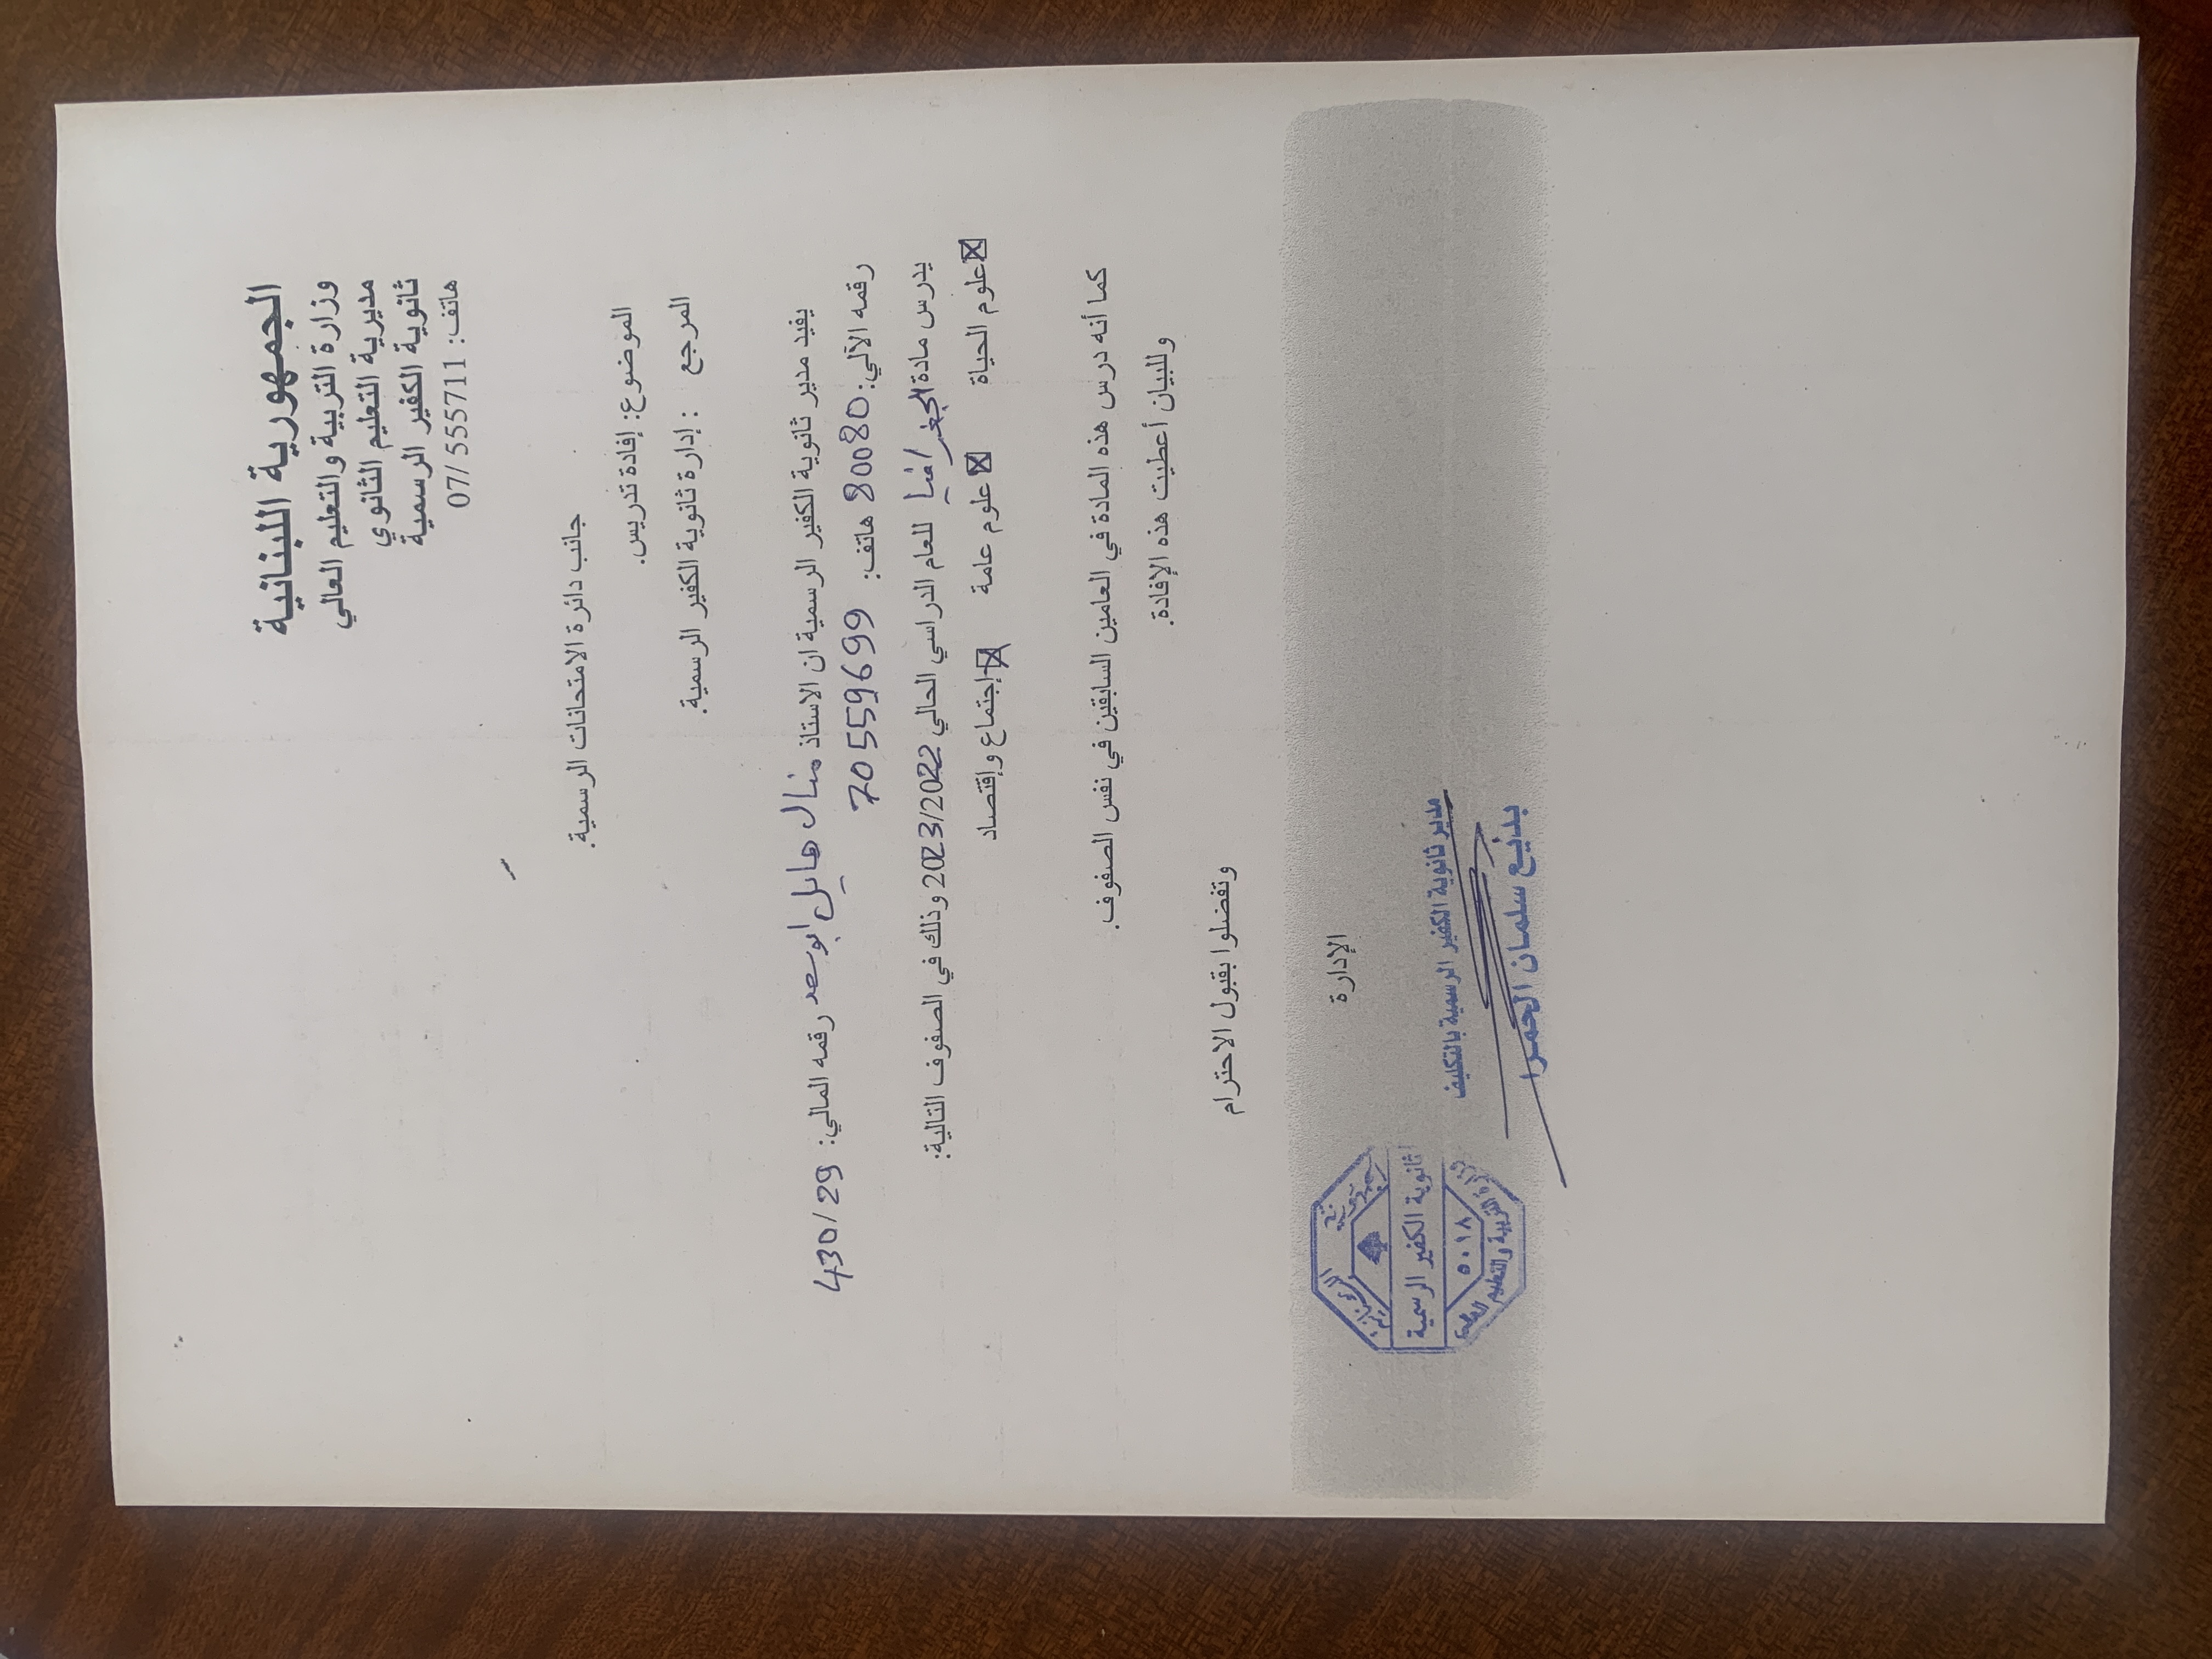 الجمهورية اللبنانية
وزارة التربية والتعليم العالي
مديرية التعليم الثانوي
ثانوية الكفير الرسمية
هاتف: 07/555711
جانب دائرة الامتحانات الرسمية.
الموضوع: إفادة تدريس.
المرجع : إدارة ثانوية الكفير الرسمية.
يفيد مدير ثانوية الكفير الرسمية ان الاستاذ منال هايل ابو سعد رقمه المالي: 430/29
رقمه الآلي: 80080 هاتف: 70559699
يدرس مادة الجغرافيا للعام الدراسي الحالي 2023/2022 وذلك في الصفوف التالية:
☒علوم الحياة ☒علوم عامة ☒إجتماع وإقتصاد
كما أنه درس هذه المادة في العامين السابقين في نفس الصفوف.
وللبيان أعطيت هذه الإفادة.
وتفضلوا بقبول الاحترام
الإدارة
مدير ثانوية الكفير الرسمية بالتكليف
بديع سلمان الحمرا
الجمهورية اللبنانية
ثانوية الكفير الرسمية
٥٠١٨
وزارة التربية والتعليم العالي